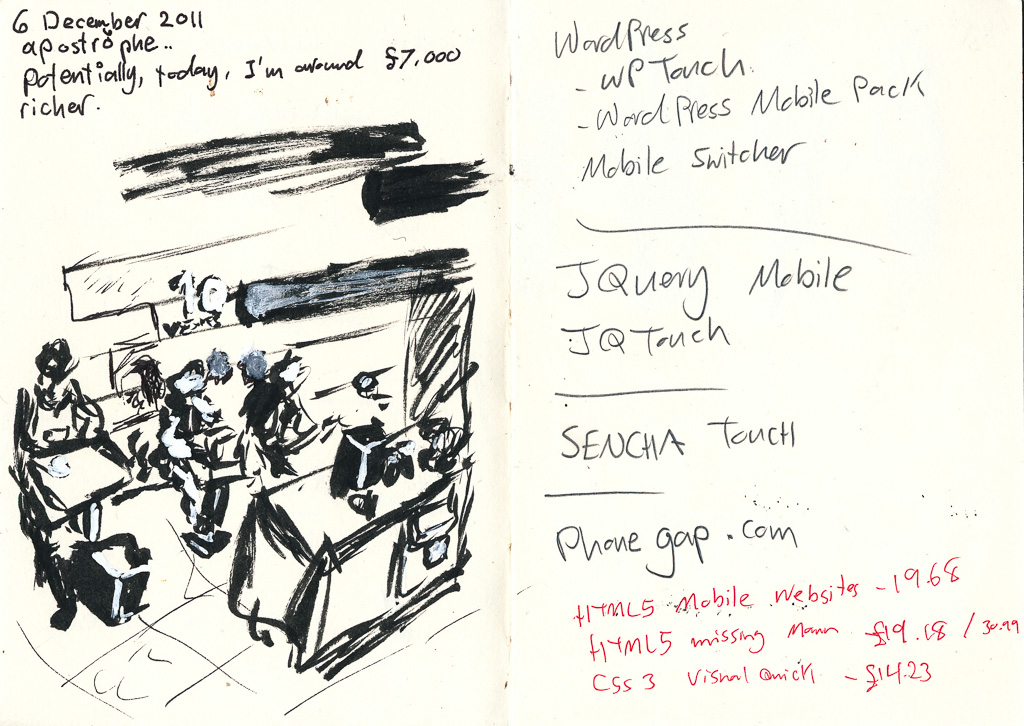 6 December 2011
apostrophe..
Potentially, today, I'm around £7,000
richer.
10
YEARS
WordPress
- WPTouch
- WordPress Mobile Pack
Mobile Switcher
JQuery Mobile
JQTouch
SENCHA Touch
Phonegap.com
HTML5 Mobile Websites - 19.68
HTML5 missing Mann £19.18 / 30.99
CSS3 Visual Quick - £14.23